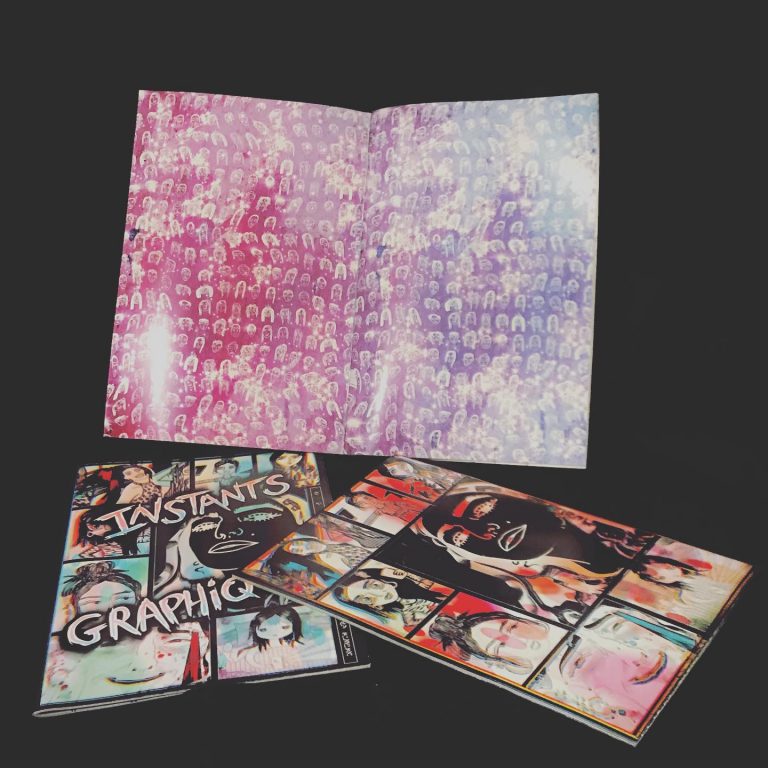 INSTANTS
GRAPHiQ